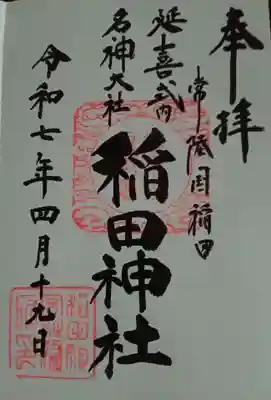 奉拝
常陸国稲田
延喜式内
名神大社
稲田神社
令和七年四月十九日